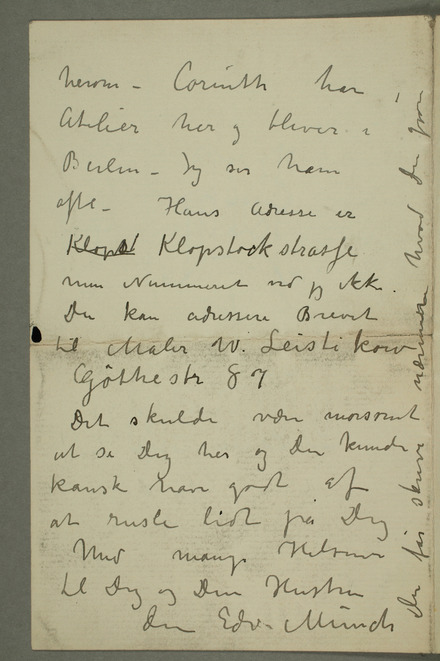 herom – Corinth har
Atelier her og bliver i
Berlin – Jeg ser ham
ofte – Hans Adresse er
Klopst Klopstockstrasse
men Nummeret ved jeg ikke.
Du kan adressere Brevet
til Maler W. Leistikow
Göthestr 87
Det skulde være morsomt
at se Dig her og Du kunde
kanske have godt af
at rusle lidt på Dig
Med mange Hilsener
til Dig og Din Hustru
Din Edv. Munch
Du får skrive nærmere hvad Du